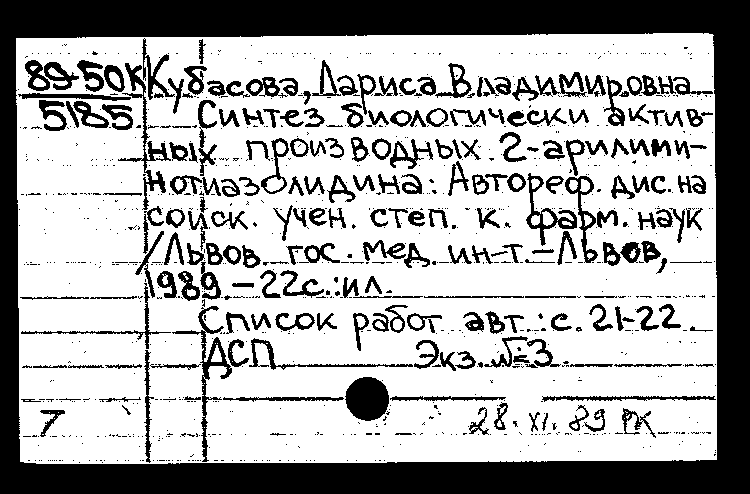 89-50К Кубасова, Лариса Владимировна
5185 Синтез биологически актив-
ных производных 2-арилими-
нотиазолидина: Автореф. дис. на
соиск. учен. степ. к. фарм. наук
/Львов. гос. мед. ин-т. – Львов,
1989. – 22с.: ил.
Список работ авт.: с. 21-22.
ДСП Экз. №3.
7 28. XI. 89 РК